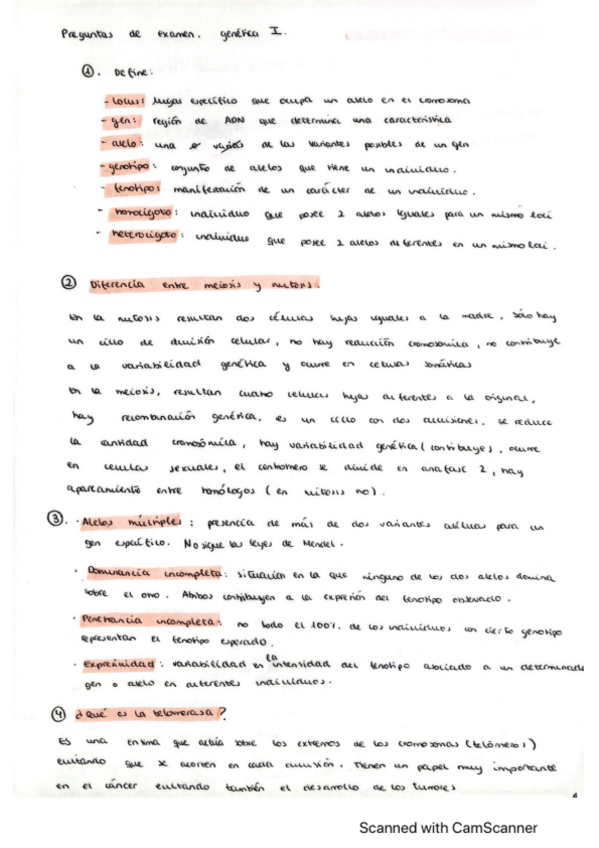 Preguntas de examen. genética I.
①. Define:
- locus: lugar específico que ocupa un alelo en el cromosoma
- gen: región de ADN que determina una característica
- alelo: una o varias de las variantes posibles de un gen
- genotipo: conjunto de alelos que tiene un individuo.
- fenotipo: manifestación de un carácter de un individuo.
- homocigoto: individuo que posee 2 alelos iguales para un mismo loci
- heterocigoto: individuo que posee 2 alelos diferentes en un mismo loci.
② Diferencia entre meiosis y mitosis.
En la mitosis resultan dos células hijas iguales a la madre, sólo hay
un ciclo de división celular, no hay reducción cromosómica, no contribuye
a la variabilidad genética y ocurre en células somáticas
En la meiosis, resultan cuatro células hijas diferentes a la original,
hay recombinación genética, es un ciclo con dos divisiones, se reduce
la cantidad cromosómica, hay variabilidad genética (contribuye), ocurre
en células sexuales, el centrómero se divide en anafase 2, hay
apareamiento entre homólogos (en mitosis no).
③. · Alelos múltiples: presencia de más de dos variantes alélicas para un
gen específico. No sigue las leyes de Mendel.
· Dominancia incompleta: situación en la que ninguno de los dos alelos domina
sobre el otro. Ambos contribuyen a la expresión del fenotipo observado.
· Penetrancia incompleta: no todo el 100% de los individuos con cierto genotipo
representan el fenotipo esperado.
· Expresividad: variabilidad en la intensidad del fenotipo asociado a un determinado
gen o alelo en diferentes individuos.
④ ¿Qué es la telomerasa?
Es una enzima que actúa sobre los extremos de los cromosomas (telómeros)
evitando que se acorten en cada división. Tienen un papel muy importante
en el cáncer evitando también el desarrollo de los tumores
Scanned with CamScanner